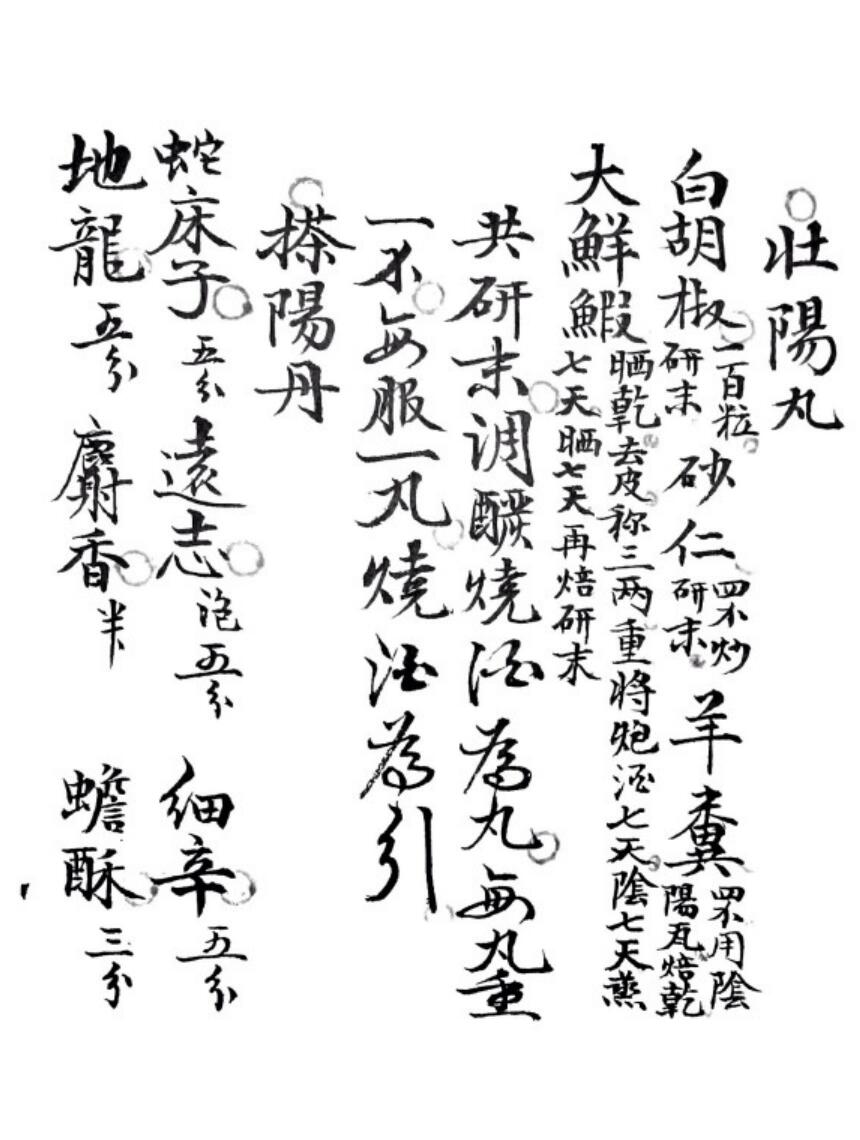 壯陽丸
白胡椒二百粒研末 砂仁四不炒研末 羊糞四不用陰陽瓦焙乾
大鮮鰕晒乾去皮称三两重將炮酒七天陰七天蒸七天晒七天再焙研末
共研末調醲燒酒為丸每丸重
一不每服一丸燒酒為引
搽陽丹
蛇床子五分 遠志泡五分 細辛五分
地龍五分 麝香半 蟾酥三分